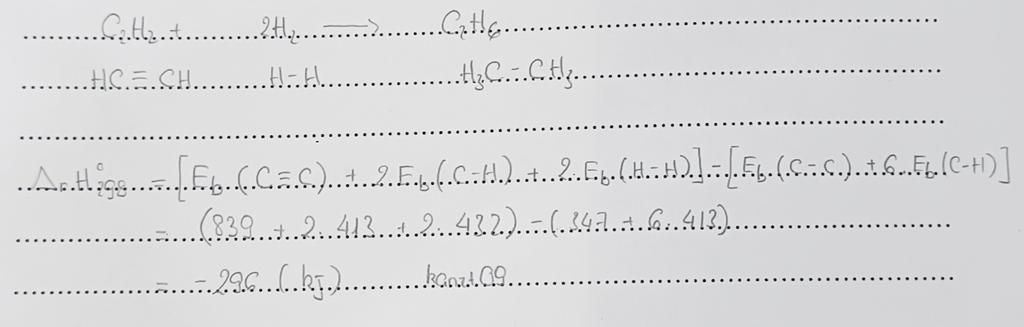 C₂H₂ + 2H₂ ⟶ C₂H₆
HC ≡ CH H-H H₃C - CH₃
ΔᵣH°₂₉₈ = [E_b (C≡C) + 2 E_b (C-H) + 2 E_b (H-H)] - [E_b (C-C) + 6 E_b (C-H)]
= (839 + 2. 413 + 2. 432) - (347 + 6. 413)
= - 296 (kJ)